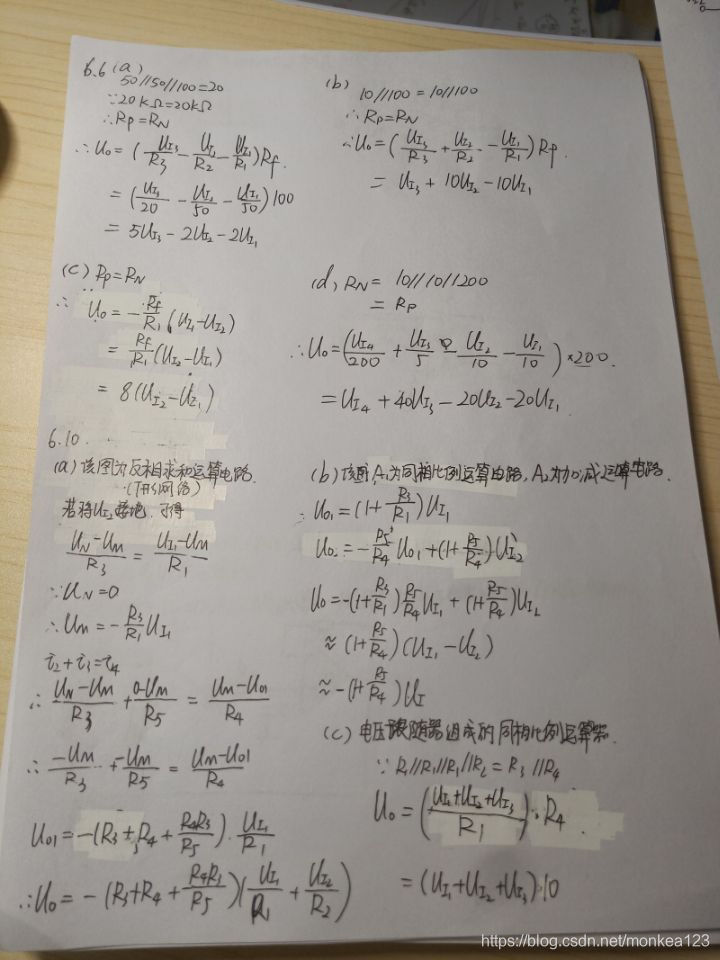 6.6 (a)
50//50//100=20
∵20kΩ=20kΩ
∴Rp=RN
∴Uo=(UI3/R3-UI2/R2-UI1/R1)Rf.
=(UI3/20-UI2/50-UI1/50)100
=5UI3-2UI2-2UI1
(b)
10//100=10//100
∴Rp=RN
∴Uo=(UI3/R3+UI2/R2-UI1/R1)Rp.
=UI3+10UI2-10UI1
(c) Rp=RN
∴Uo=-Rf/R1(UI1-UI2)
=Rf/R1(UI2-UI1)
=8(UI2-UI1)
(d) RN=10//10//200
=Rp
∴Uo=(UI4/200+UI3/5-UI2/10-UI1/10)×200
=UI4+40UI3-20UI2-20UI1
6.10.
(a)该图为反相求和运算电路.
(T形网络)
若将UI2接地,可得
UN-UM/R3=UI1-UM/R1
∵UN=0
∴UM=-R3/R1UI1
i2+i3=i4
∴UN-UM/R3+0-UM/R5=UM-U01/R4
∴-UM/R3+-UM/R5=UM-U01/R4
U01=-(R3+R4+R4R3/R5)·UI1/R1
∴Uo=-(R3+R4+R4R3/R5)(UI1/R1+UI2/R2)
(b)该图A1为同相比例运算电路,A2为加减运算电路.
∴U01=(1+R3/R1)UI1
Uo=-R5/R4U01+(1+R5/R4)UI2
Uo=-(1+R3/R1)R5/R4UI1+(1+R5/R4)UI2
≈(1+R5/R4)(UI1-UI2)
≈-(1+R5/R4)UI
(c)电压跟随器组成的同相比例运算器.
∵R1//R1//R1//R2=R3//R4
Uo=(UI1+UI2+UI3/R1)·R4
=(UI1+UI2+UI3)·10
https://blog.csdn.net/monkea123